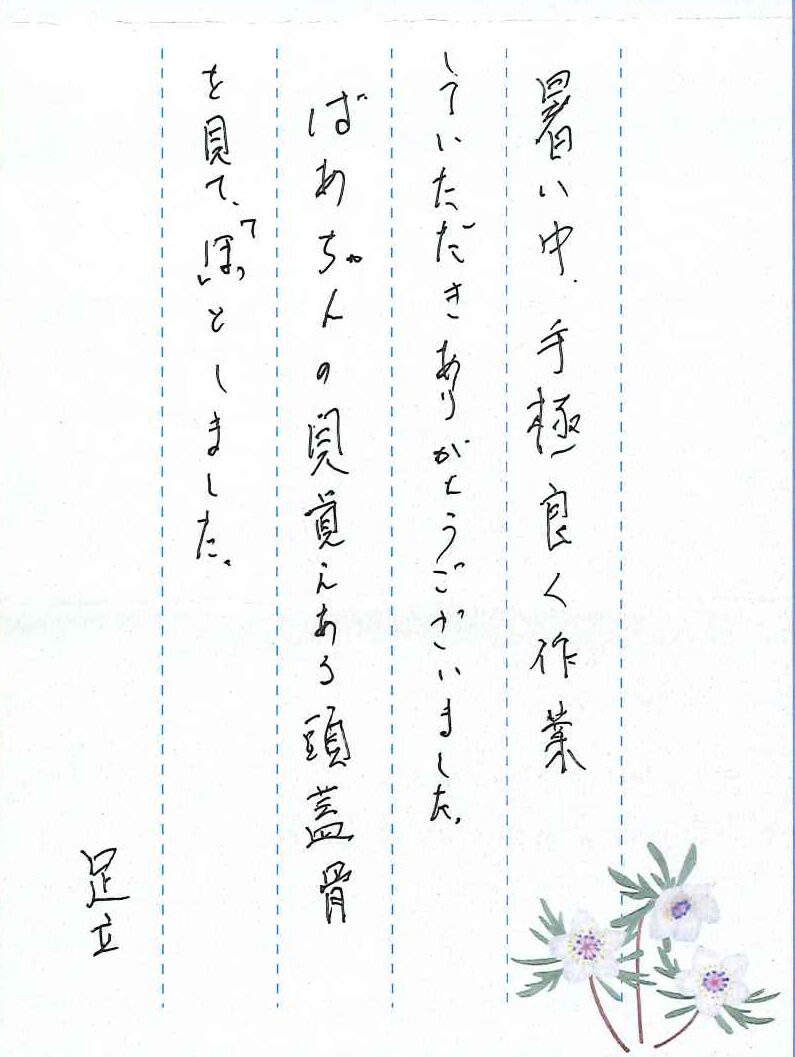 暑い中、手極良く作業
していただきありがとうございました。
ばあちゃんの見覚えある頭蓋骨
を見て、「ほっ」としました。
足立